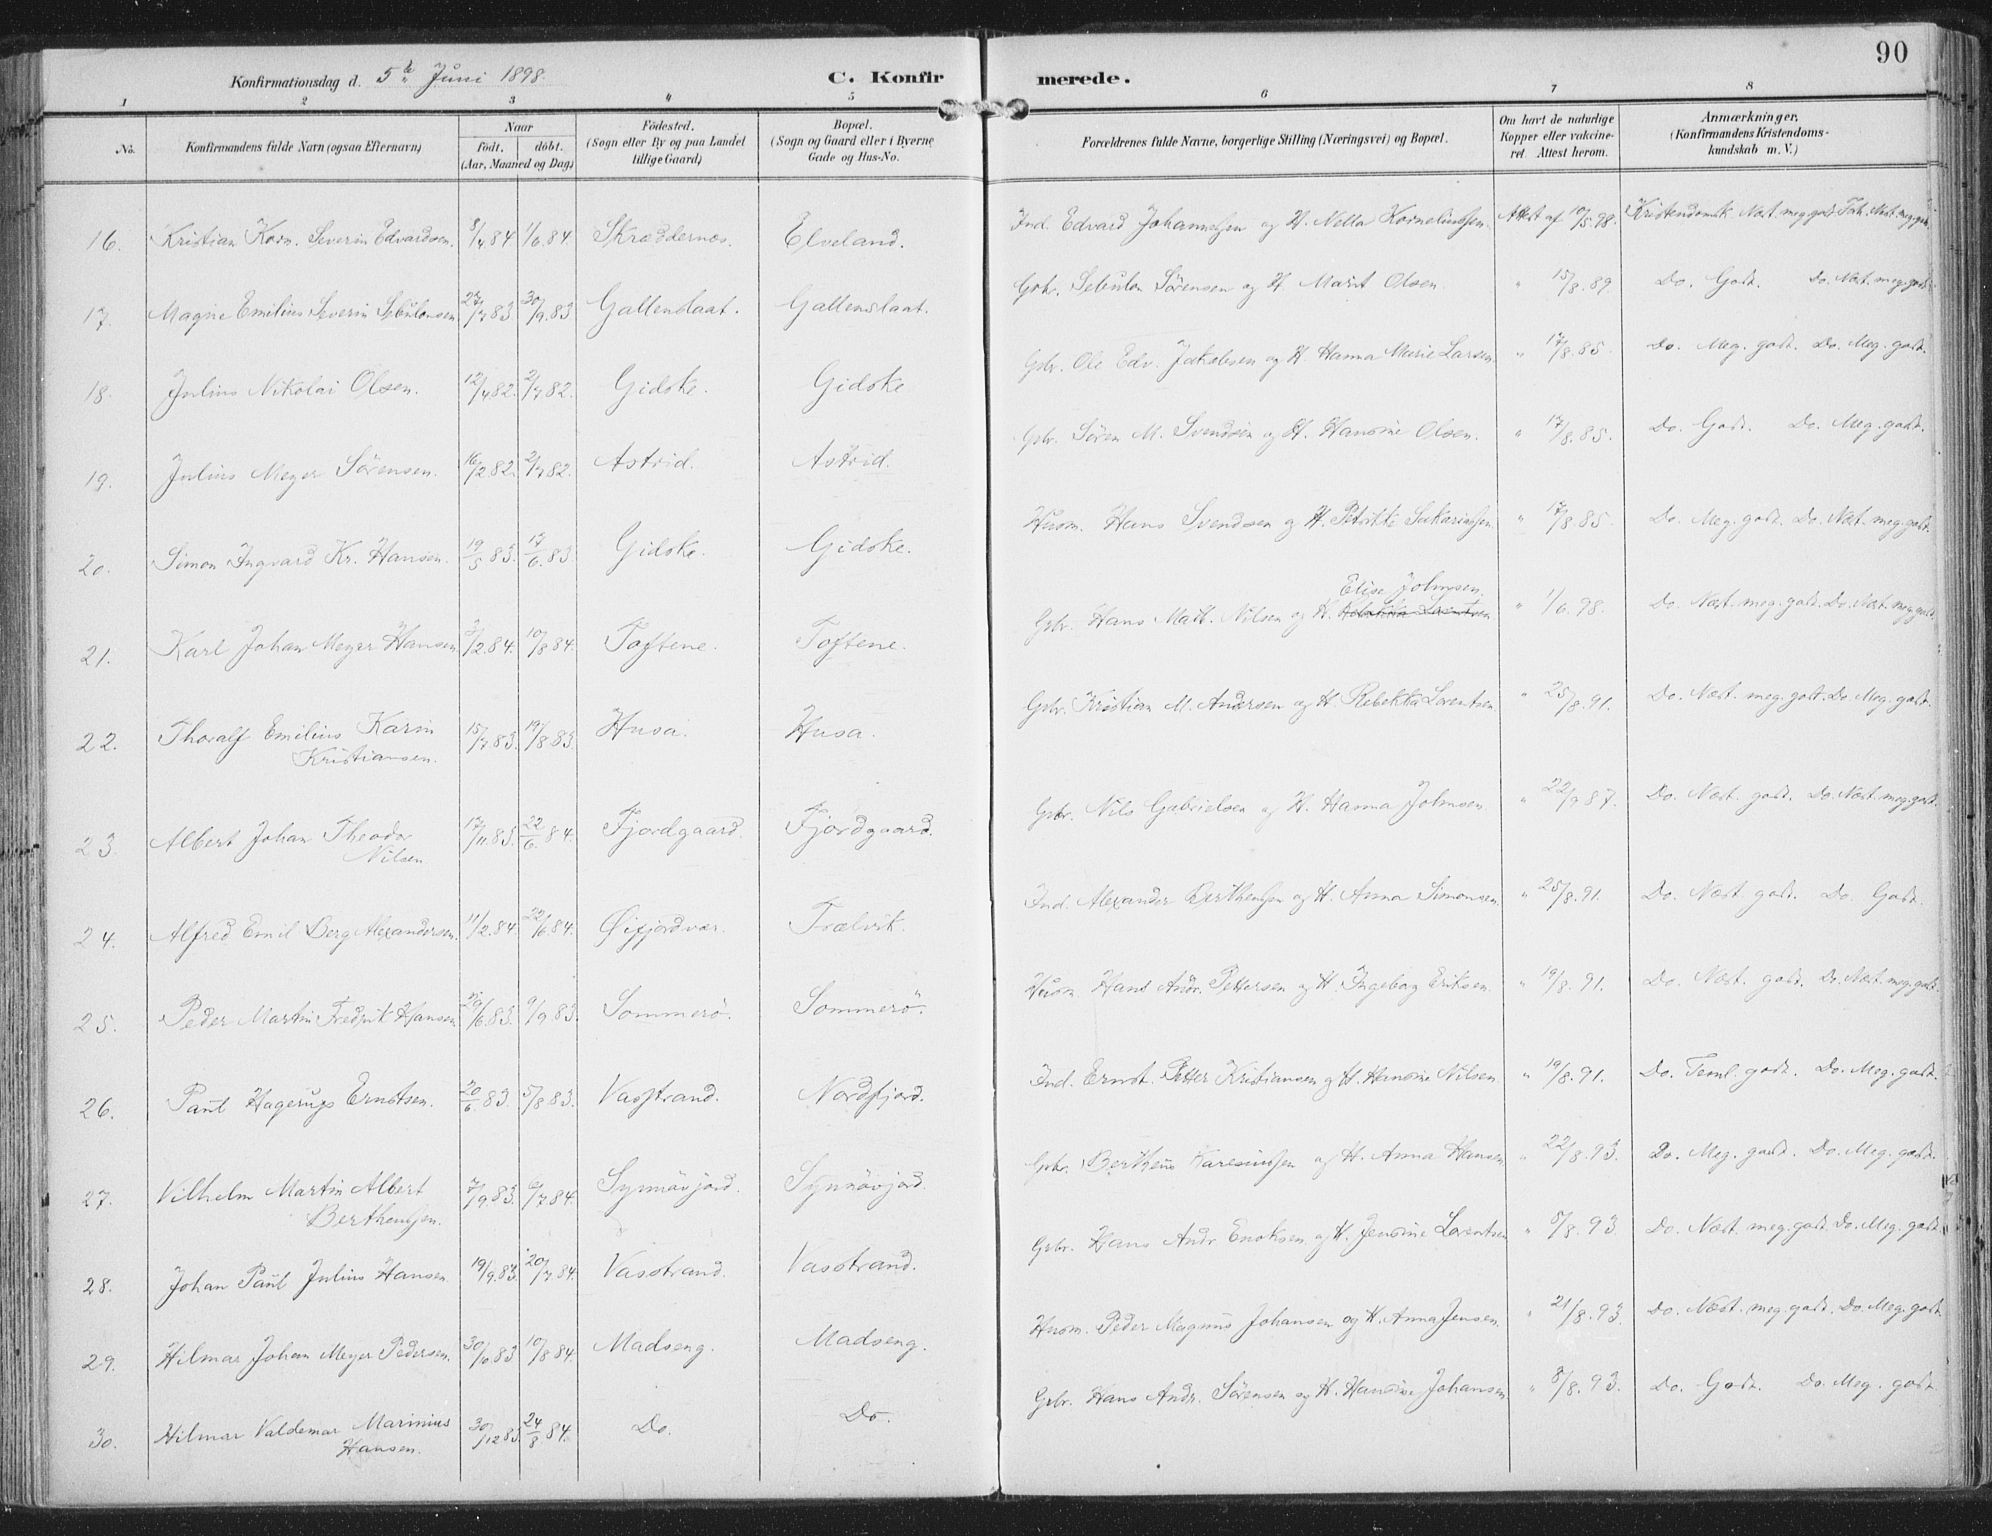 90
Konfirmationsdag d. 5te Juni 1898.
C. Konfirmerede.
1 2 3 4 5 6 7 8
No. Konfirmandens fulde Navn (ogsaa Efternavn) Naar født. døbt. (Aar, Maaned og Dag) Fødested. (Sogn eller By og paa Landet tillige Gaard) Bopæl. (Sogn og Gaard eller i Byerne Gade og Hus-No. Forældrenes fulde Navne, borgerlige Stilling (Næringsvei) og Bopæl. Om havt de naturlige Kopper eller vakcineret. Attest herom. Anmærkninger, (Konfirmandens Kristendomskundskab m. V.)
16. Kristian Korn. Severin Edvardsen. 8/4 84 1/6 84. Skræddernes. Elveland. Ind. Edvard Johannessen og H. Nella Korneliussen. Attest af 10/5.98. Kristendomsk. Næst. meg. godt.
17. Magne Emilius Severin Sebulonsen 27/7 83 30/9 83 Gallenslaat. Gallenslaat. Gbr. Sebulon Sørensen og H. Marit Olsen. " 15/8.89. Do. Godt. Do. Næst. meg. godt.
18. Julius Nikolai Olsen. 12/4 82. 2/7 82. Gidske. Gidske Gbr. Ole Edv. Jakobsen og H. Hanna Marie Larsen " 17/8.85. Do. Meg. godt. Do. Meg. godt.
19. Julius Meyer Sørensen. 16/2 82. 2/7 82. Astrid. Astrid. Gbr. Søren M. Svendsen og H. Hansine Olsen. " 17/8.85. Do. Godt. Do. Meg. godt.
20. Simon Ingvard Kr. Hansen. 19/5 83. 17/6 83. Gidske. Gidske. Husm. Hans Svendsen og H. Petrikke Sakariassen " 17/8.85. Do. Meg. godt. Do. Næst. meg. godt.
21. Karl Johan Meyer Hansen 2/2 84. 10/8 84. Toftene. Toftene. Gbr. Hans Math. Nilsen og H. Elise Johnsen. " 1/6.98. Do. Næst. meg. godt. Do. Næst. meg. godt.
22. Thoralf Emilius Karin Kristiansen. 15/7 83. 19/8 83. Husa. Husa. Gbr. Kristian M. Andersen og H. Rebekka Lorentsen " 25/8.91. Do. Næst. meg. godt. Do. Meg. godt.
23. Albert Johan Theodor Nilsen 17/11 83. 22/6. 84. Fjordgaard. Fjordgaard. Gbr. Nils Gabrielsen og H. Hanna Johnsen " 22/9 87. Do. Næst. godt. Do. Næst. meg. godt.
24. Alfred Emil Berg Alexandersen. 11/2.84. 22/6 84. Øifjordvær. Trælvik. Ind. Alexander Berthensen og H. Anna Simonsen " 25/8.91. Do. Næst godt. Do. Godt.
25. Peder Martin Fredrik Hansen 29/6.83. 9/9 83. Sommerö. Sommerö. Husm. Hans Andr. Pettersen og H. Ingeborg Eriksen. " 19/8.91. Do. Næst. godt. Do. Næst. meg. godt.
26. Paul Hagerup Ernstsen. 20/6 83. 5/8 83. Vasstrand. Nordfjord. Ind. Ernst Petter Kristiansen og H. Hansine Nilsen. " 19/8.91. Do. Teml. godt. Do. Meg. godt.
27. Vilhelm Martin Albert Berthensen. 7/9 83. 6/7 84. Synnøvjord. Synnøvjord. Gbr. Bertheus Karesiussen og H. Anna Hansen " 22/8.93. Do. Meg. godt. Do. Meg. godt.
28. Johan Paul Julius Hansen. 19/9 83. 20/7.84. Vasstrand. Vasstrand. Gbr. Hans Andr Enoksen og H. Jensine Lorentsen " 8/8.93 Do. Næst. meg. godt. Do. Meg. godt
29. Hilmar Johan Meyer Pedersen. 30/10 83. 10/8 84. Madseng. Madseng. Husm. Peder Magnus Johansen og H. Anna Jensen. " 21/8.93. Do. Næst. meg. godt. Do. Meg. godt.
30. Hilmar Valdemar Marinius Hansen. 30/12 83. 24/8 84. Do. Do. Gbr. Hans Andr. Sørensen og H. Hansine Johansen " 8/8.93. Do. Godt. Do. Meg. godt